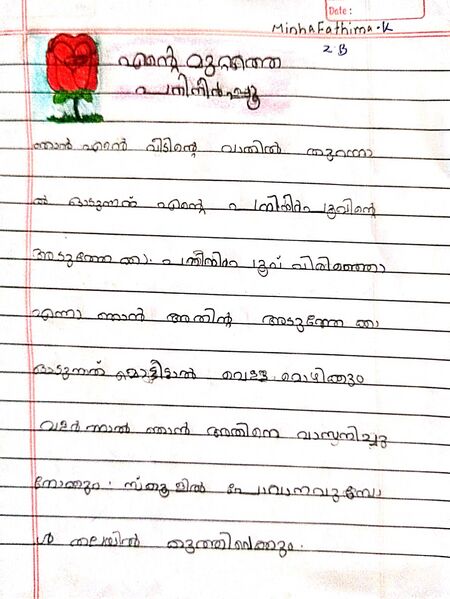 Date:
Minha Fathima.K
2 B
എന്റെ മുറ്റത്തെ
പനിനീർപ്പൂ
ഞാൻ എന്റെ വീടിന്റെ വാതിൽ തുറന്നാ
ൽ ഓടുന്നത് എന്റെ പനിനീർ പൂവിന്റെ
അടുത്തേക്കാ. പനിനീർ പൂവ് വിരിഞ്ഞോ
എന്നാ ഞാൻ അതിന്റെ അടുത്തേക്കാ
ഓടുന്നത് മൊട്ടിട്ടാൽ വെള്ളമൊഴിക്കും
വളർന്നാൽ ഞാൻ അതിനെ വാസനിച്ചു
നോക്കും. സ്കൂളിൽ പോവാനവുമ്പോ
ൾ തലയിൽ കുത്തിവെക്കും.